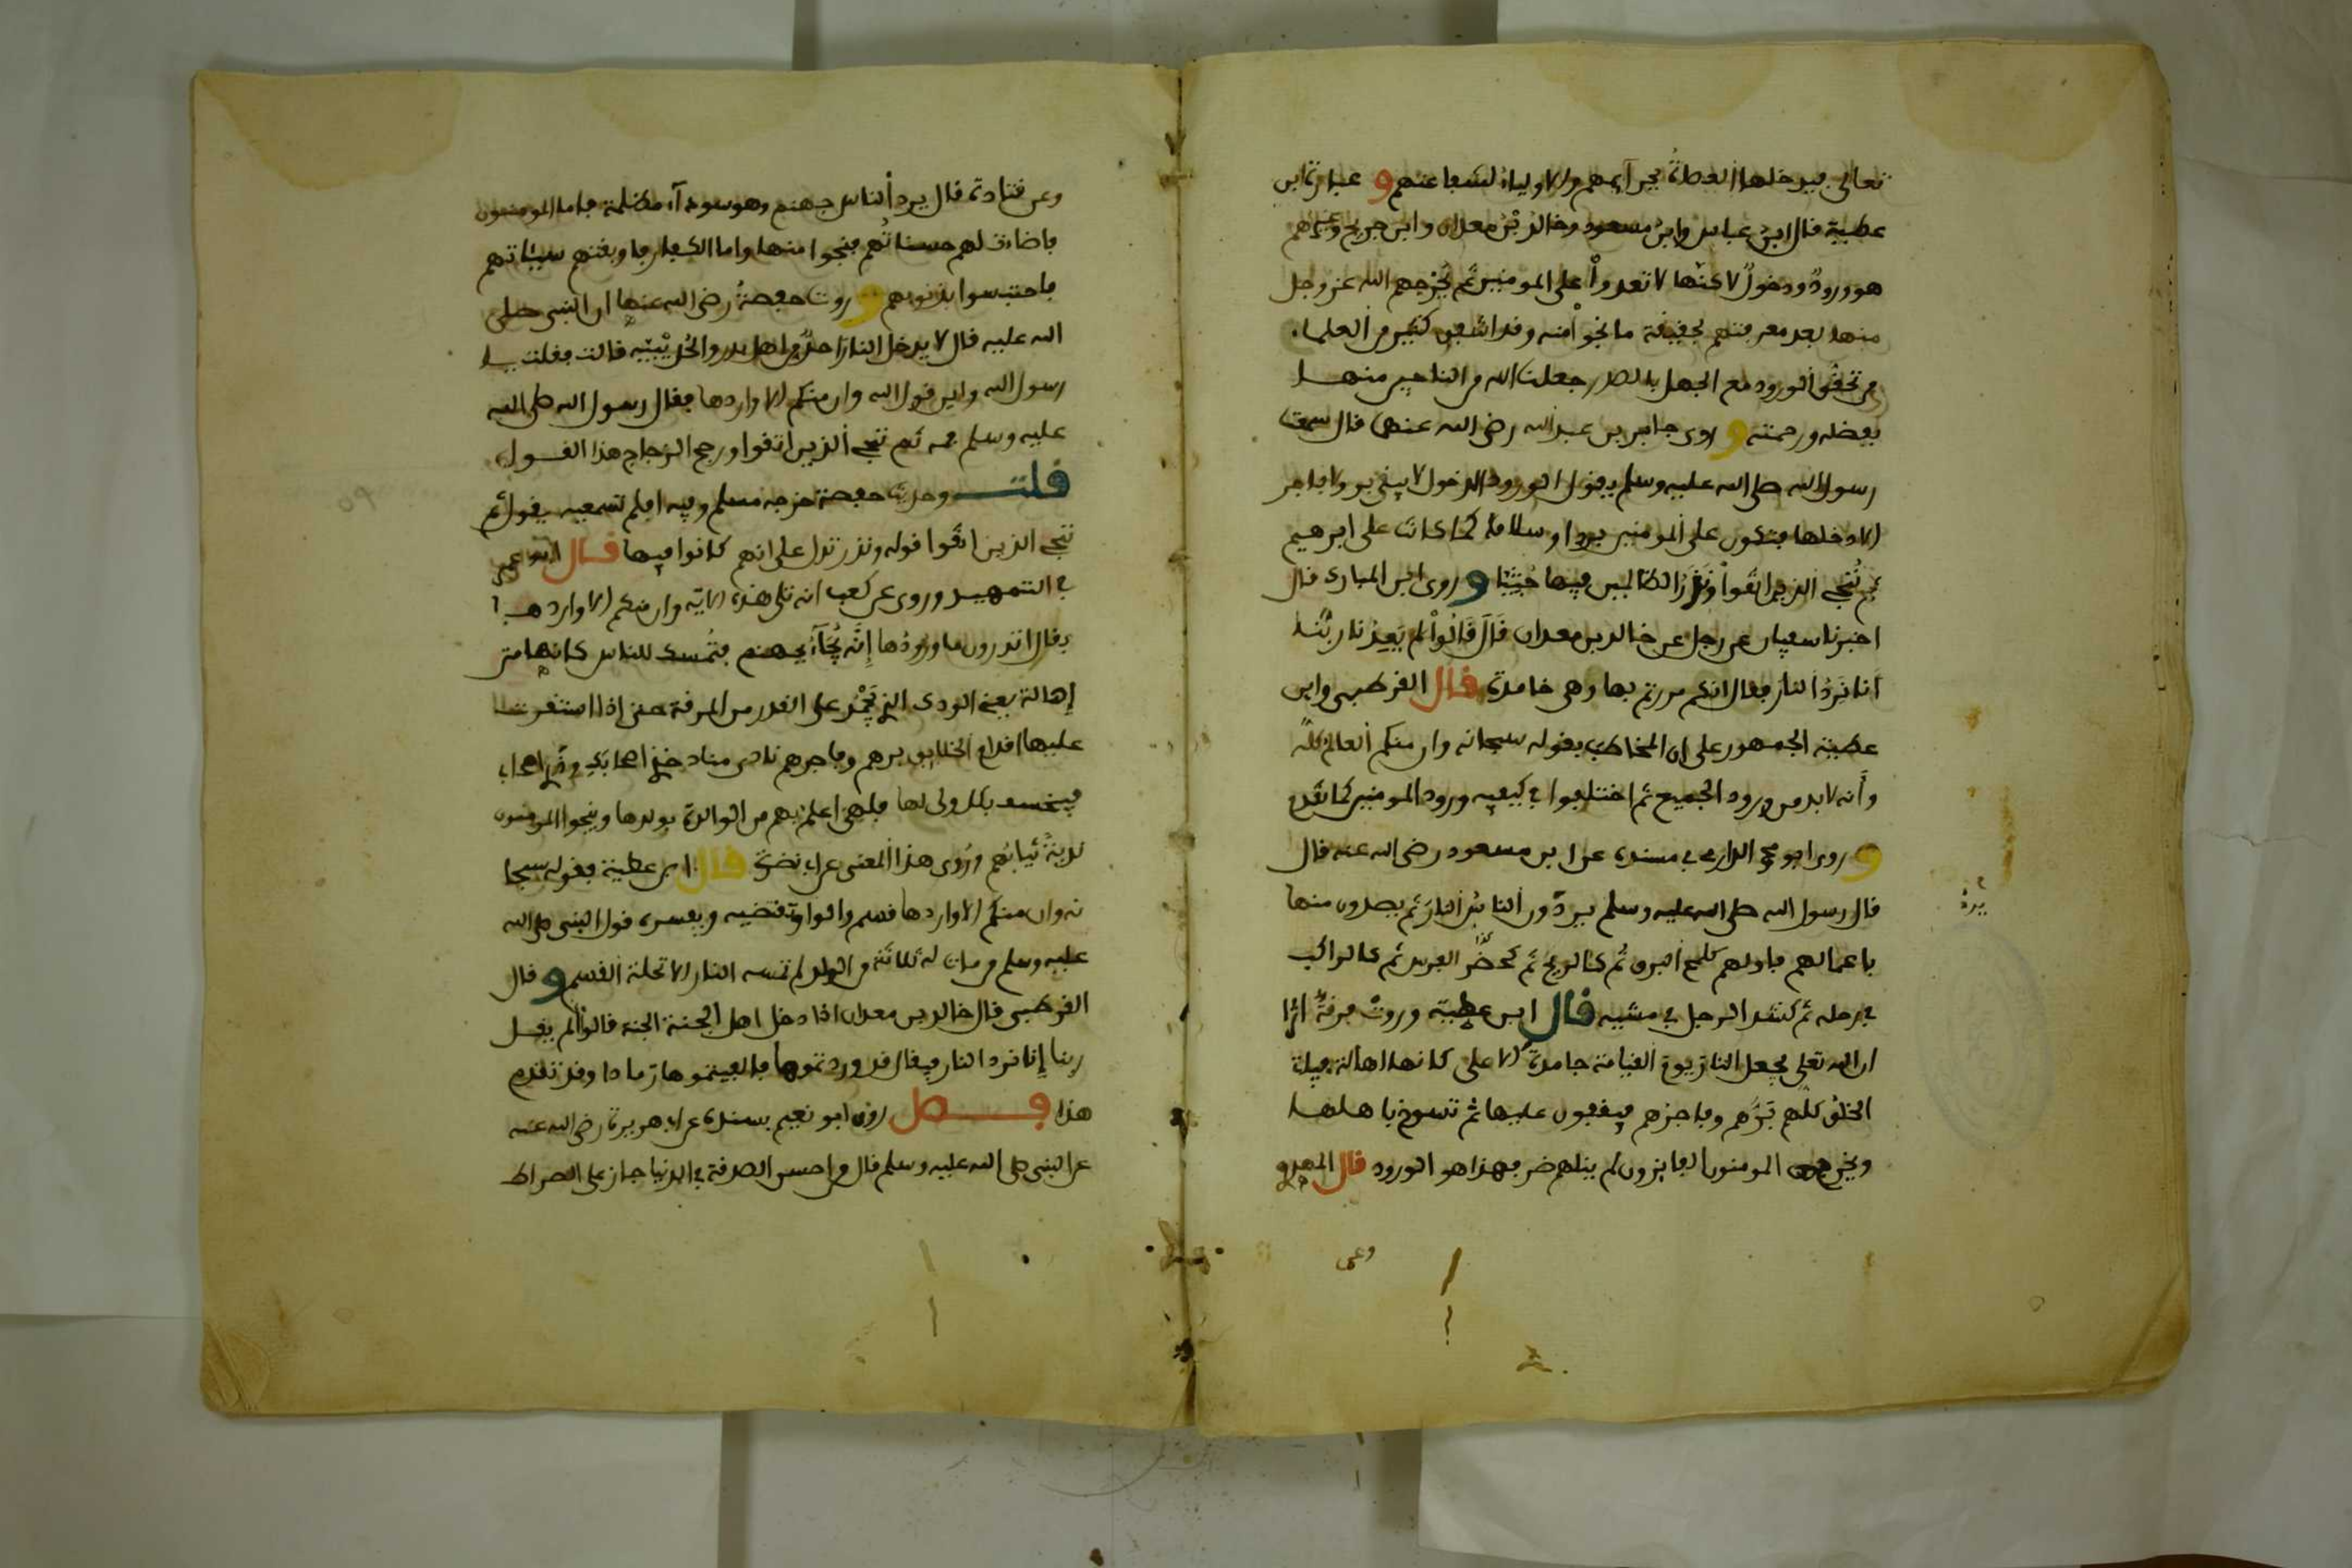 تعالى فيدخلها العصاة بجرآيمهم والاولياء لشفاعتهم و عبارة ابن
عطية قال ابن عباس وابن مسعود وخالد بن معدان وابن جريج وغيرهم
هو ورود دخول لاكنها لا تعدوا على المومنين ثم يخرجهم الله عز وجل
منها بعد معرفتهم بحقيقة ما نجوا منه وقد اشفق كثير من العلماء
من تحقق الورود مع الجهل بالصدر جعلنا الله من الناجين منها
بفضله ورحمته و روى جابر بن عبد الله رضى الله عنهما قال سمعت
رسول الله صلى الله عليه وسلم يقول الورود الدخول لا يبقى بر ولا فاجر
الا دخلها فتكون على المومنين بردا وسلاما كما كانت على ابرهيم
ثم ننجى الذين اتقوا ونذر الظالمين فيها جثيا و روى ابن المبارك قال
اخبرنا سفيان عن رجل عن خالد بن معدان قال قالوا الم يعدنا ربنا
انا نرد النار فقال انكم مررتم بها وهى خامدة قال القرطبى وابن
عطية الجمهور على ان المخاطب بقوله سبحانه وان منكم العالم كله
وأنه لا بد من ورود الجميع ثم اختلفوا فى كيفية ورود المومنين كما تقدم
و روى ابو محمد الدارمى فى مسنده عن ابن مسعود رضى الله عنه قال
قال رسول الله صلى الله عليه وسلم يرد الناس النار ثم يصدرون منها
باعمالهم فاولهم كلمح البرق ثم كالريح ثم كحضر الفرس ثم كالراكب
فى رحله ثم كشد الرجل فى مشيه قال ابن عطية وروت فرقة اثرا
ان الله تعلى يجعل النار يوم القيامة جامدة الاعلى كانها اهالة فياتى
الخلق كلهم برهم وفاجرهم فيقفون عليها ثم تسوخ باهلها
ويخرج المومنون الفايزون لم ينلهم ضر فهذا هو الورود قال المهدو
يرد
وعن
وعن قتادة قال يرد الناس جهنم وهى سودآء مظلمة فاما المومنون
فاضاءت لهم حسناتهم فنجوا منها واما الكفار فاوبقتهم سيئاتهم
فاحتبسوا بذنوبهم و روت حفصة رضى الله عنها ان النبى صلى
الله عليه قال لا يدخل النار احد من اهل بدر والحديبية قالت فقلت يا
رسول الله واين قول الله وان منكم الا واردها فقال رسول الله صلى الله
عليه وسلم فمه ثم ننجى الذين اتقوا ورجح الزجاج هذا القول
قلت وحديث حفصة خرجه مسلم وفيه افلم تسمعيه يقول ثم
ننجى الذين اتقوا قوله ونذر تدل على انهم كانوا فيها قال ابو عمر
فى التمهيد وروى عن كعب انه تلى هذه الاية وان منكم الا واردها
فقال اتدرون ما ورودها إنه يجآء بجهنم فتمسك للناس كانها متن
إهالة يعنى الودك الذى يجمد على القدر من المرقة حتى إذا استقرت
عليها اقدام الخلايق برهم وفاجرهم نادى مناد خذى اصحابك وذرى اصحابى
فيخسف بكل ولى لها فلهى اعلم بهم من الوالدة بولدها وينجوا المومنون
ندية ثيابهم وروى هذا المعنى عن ابى نضرة قال ابن عطية بقوله سبحا
نه وان منكم الا واردها قسم والواو تقتضيه ويفسره قول النبى صلى الله
عليه وسلم من مات له ثلاثة من الولد لم تمسه النار الا تحلة القسم و قال
القرطبى قال خالد بن معدان اذا دخل اهل الجنة الجنة قالوا الم يقل
ربنا إنا نرد النار فيقال قد وردتموها فالفيتموها رمادا وقد تقدم
هذا فصل روى ابو نعيم بسنده عن ابى هريرة رضى الله عنه
عن النبى صلى الله عليه وسلم قال من احسن الصدقة فى الدنيا جاز على الصراط